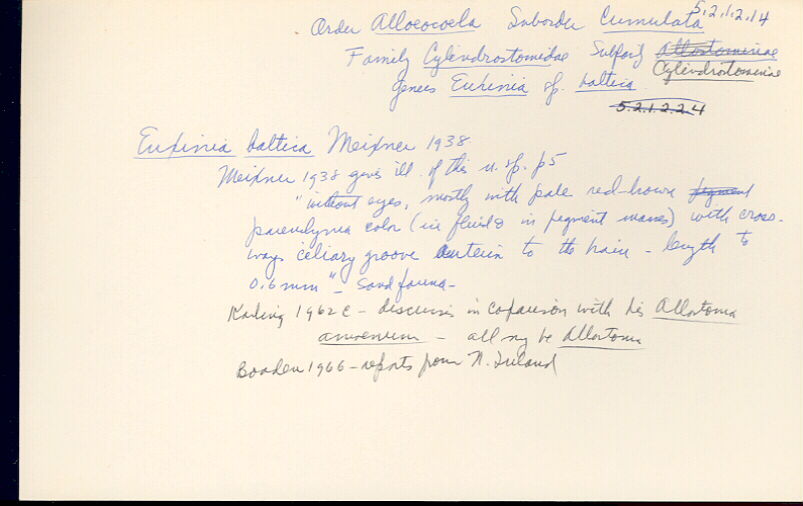 5.2.1.2.14
Order Alloeocoela Suborder Cumulata
Family Cylindrostomidae Subfamily Allostominae
Cylindrostominae
genus Euxinia sp. baltica
5.2.1.2.24
Euxinia baltica Meixner 1938
Meixner 1938 gives ill. of this n. sp. p5
"without eyes, mostly with pale red-brown pigment
parenchyma color (in fluid & in pigment masses) with cross-
ways ciliary groove to the brain - length to
0.6 mm" - Sand fauna -
Karling 1962 - discusses in comparison with his Allostoma
- all may be Allostoma
Boaden 1966 - reports from N. Ireland